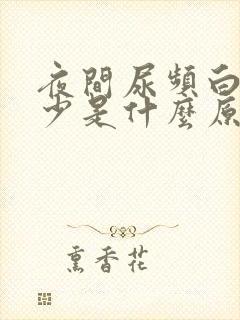 夜間尿頻白
少是什麼原
熏香花